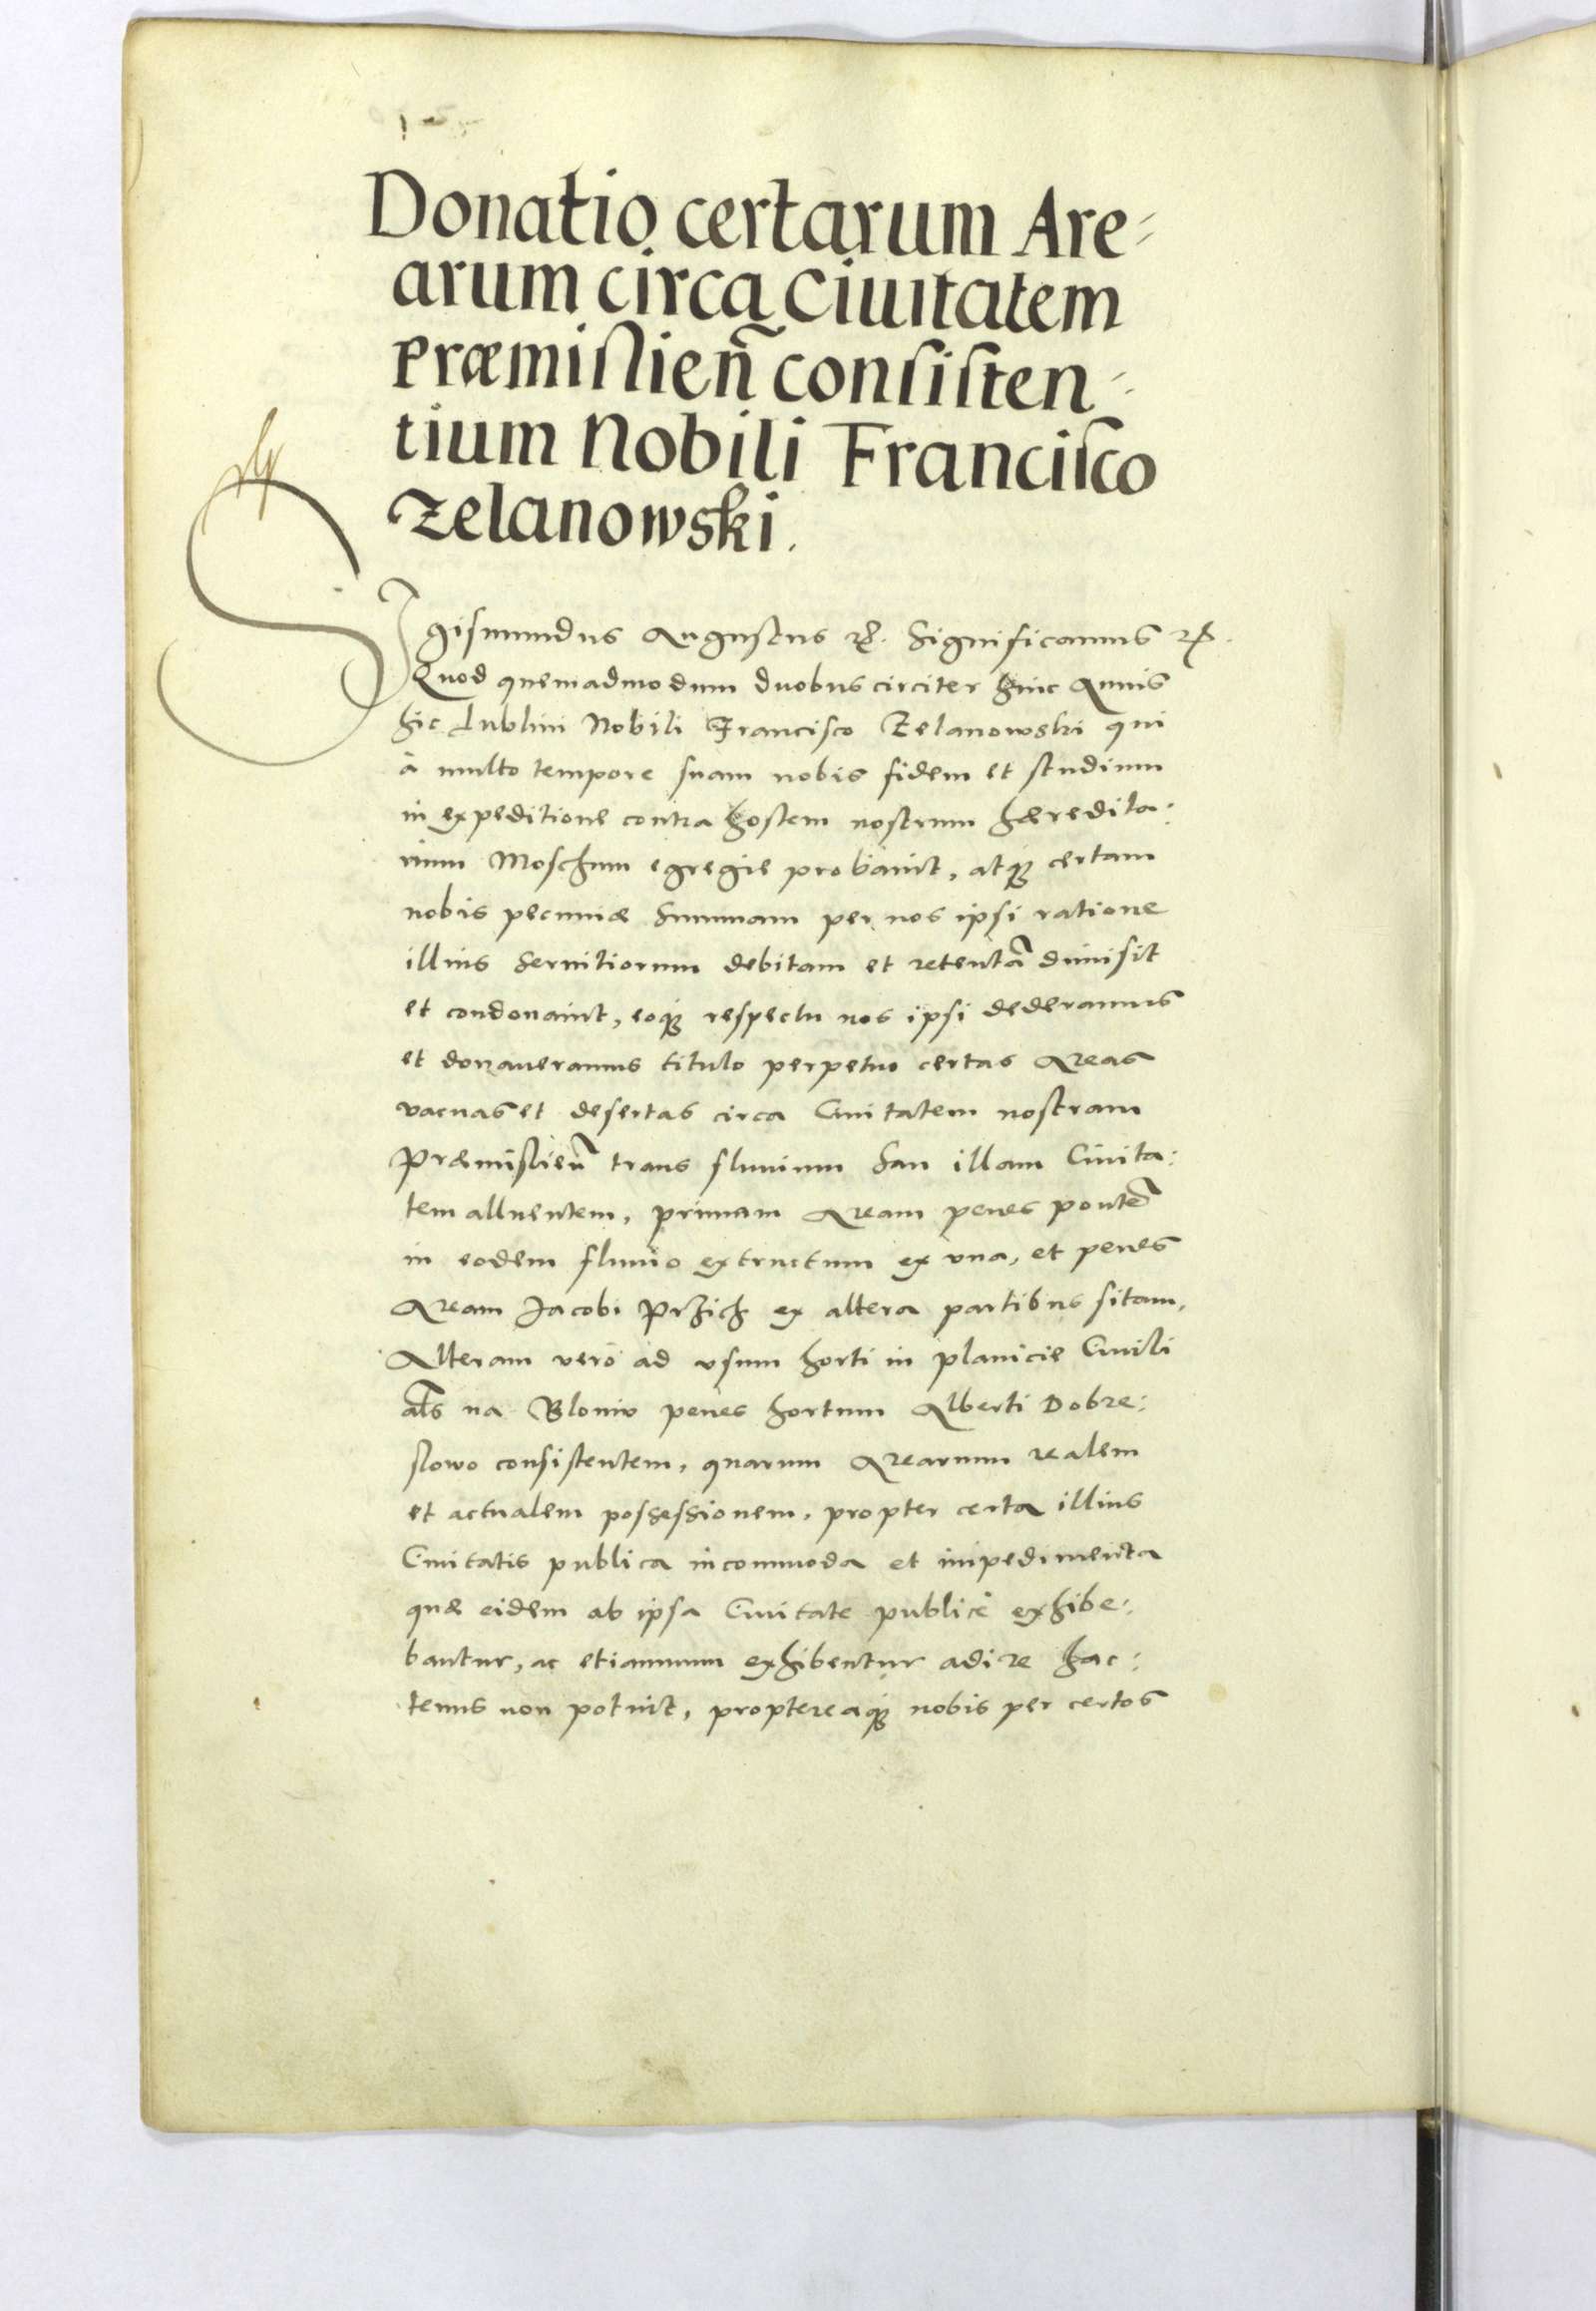 Donatio certarum Are-
arum circa Ciuitatem
Præmislien̄ consisten-
tium Nobili Francisco
Zelanowski.
Sigismundus Augustus etc. Significamus etc.
Quod quemadmodum duobus circiter hinc Annis
hic Lublini Nobili Francisco Zelanowski qui
à multo tempore suam nobis fidem et studium
in expeditione contra hostem nostrum hæredita:
rium Moschum egregie probauit, atq₃ certam
nobis pecuniæ summam per nos ipsi ratione
illius seruitiorum debitam et retentā dimisit
et condonauit, eoq₃ respectu nos ipsi dederamus
et donaueramus titulo perpetuo certas Areas
vacuas et desertas circa Ciuitatem nostram
Præmislien̄ trans fluuium San illam Ciuita:
tem alluentem, primam Aream penes pontē
in eodem fluuio extructum ex vna, et penes
Aream Jacobi Przich ex altera partibus sitam,
Alteram verò ad vsum horti in planicie Ciuili
al̄s na Bloniu penes hortum Alberti Dobre:
slowo consistentem, quarum Arearum realem
et actualem possessionem, propter certa illius
Ciuitatis publica incommoda et impedimenta
quæ eidem ab ipsa Ciuitate publicè exhibe:
bantur, ac etiamnum exhibentur adire hac:
tenus non potuit, proptereaq₃ nobis per certos